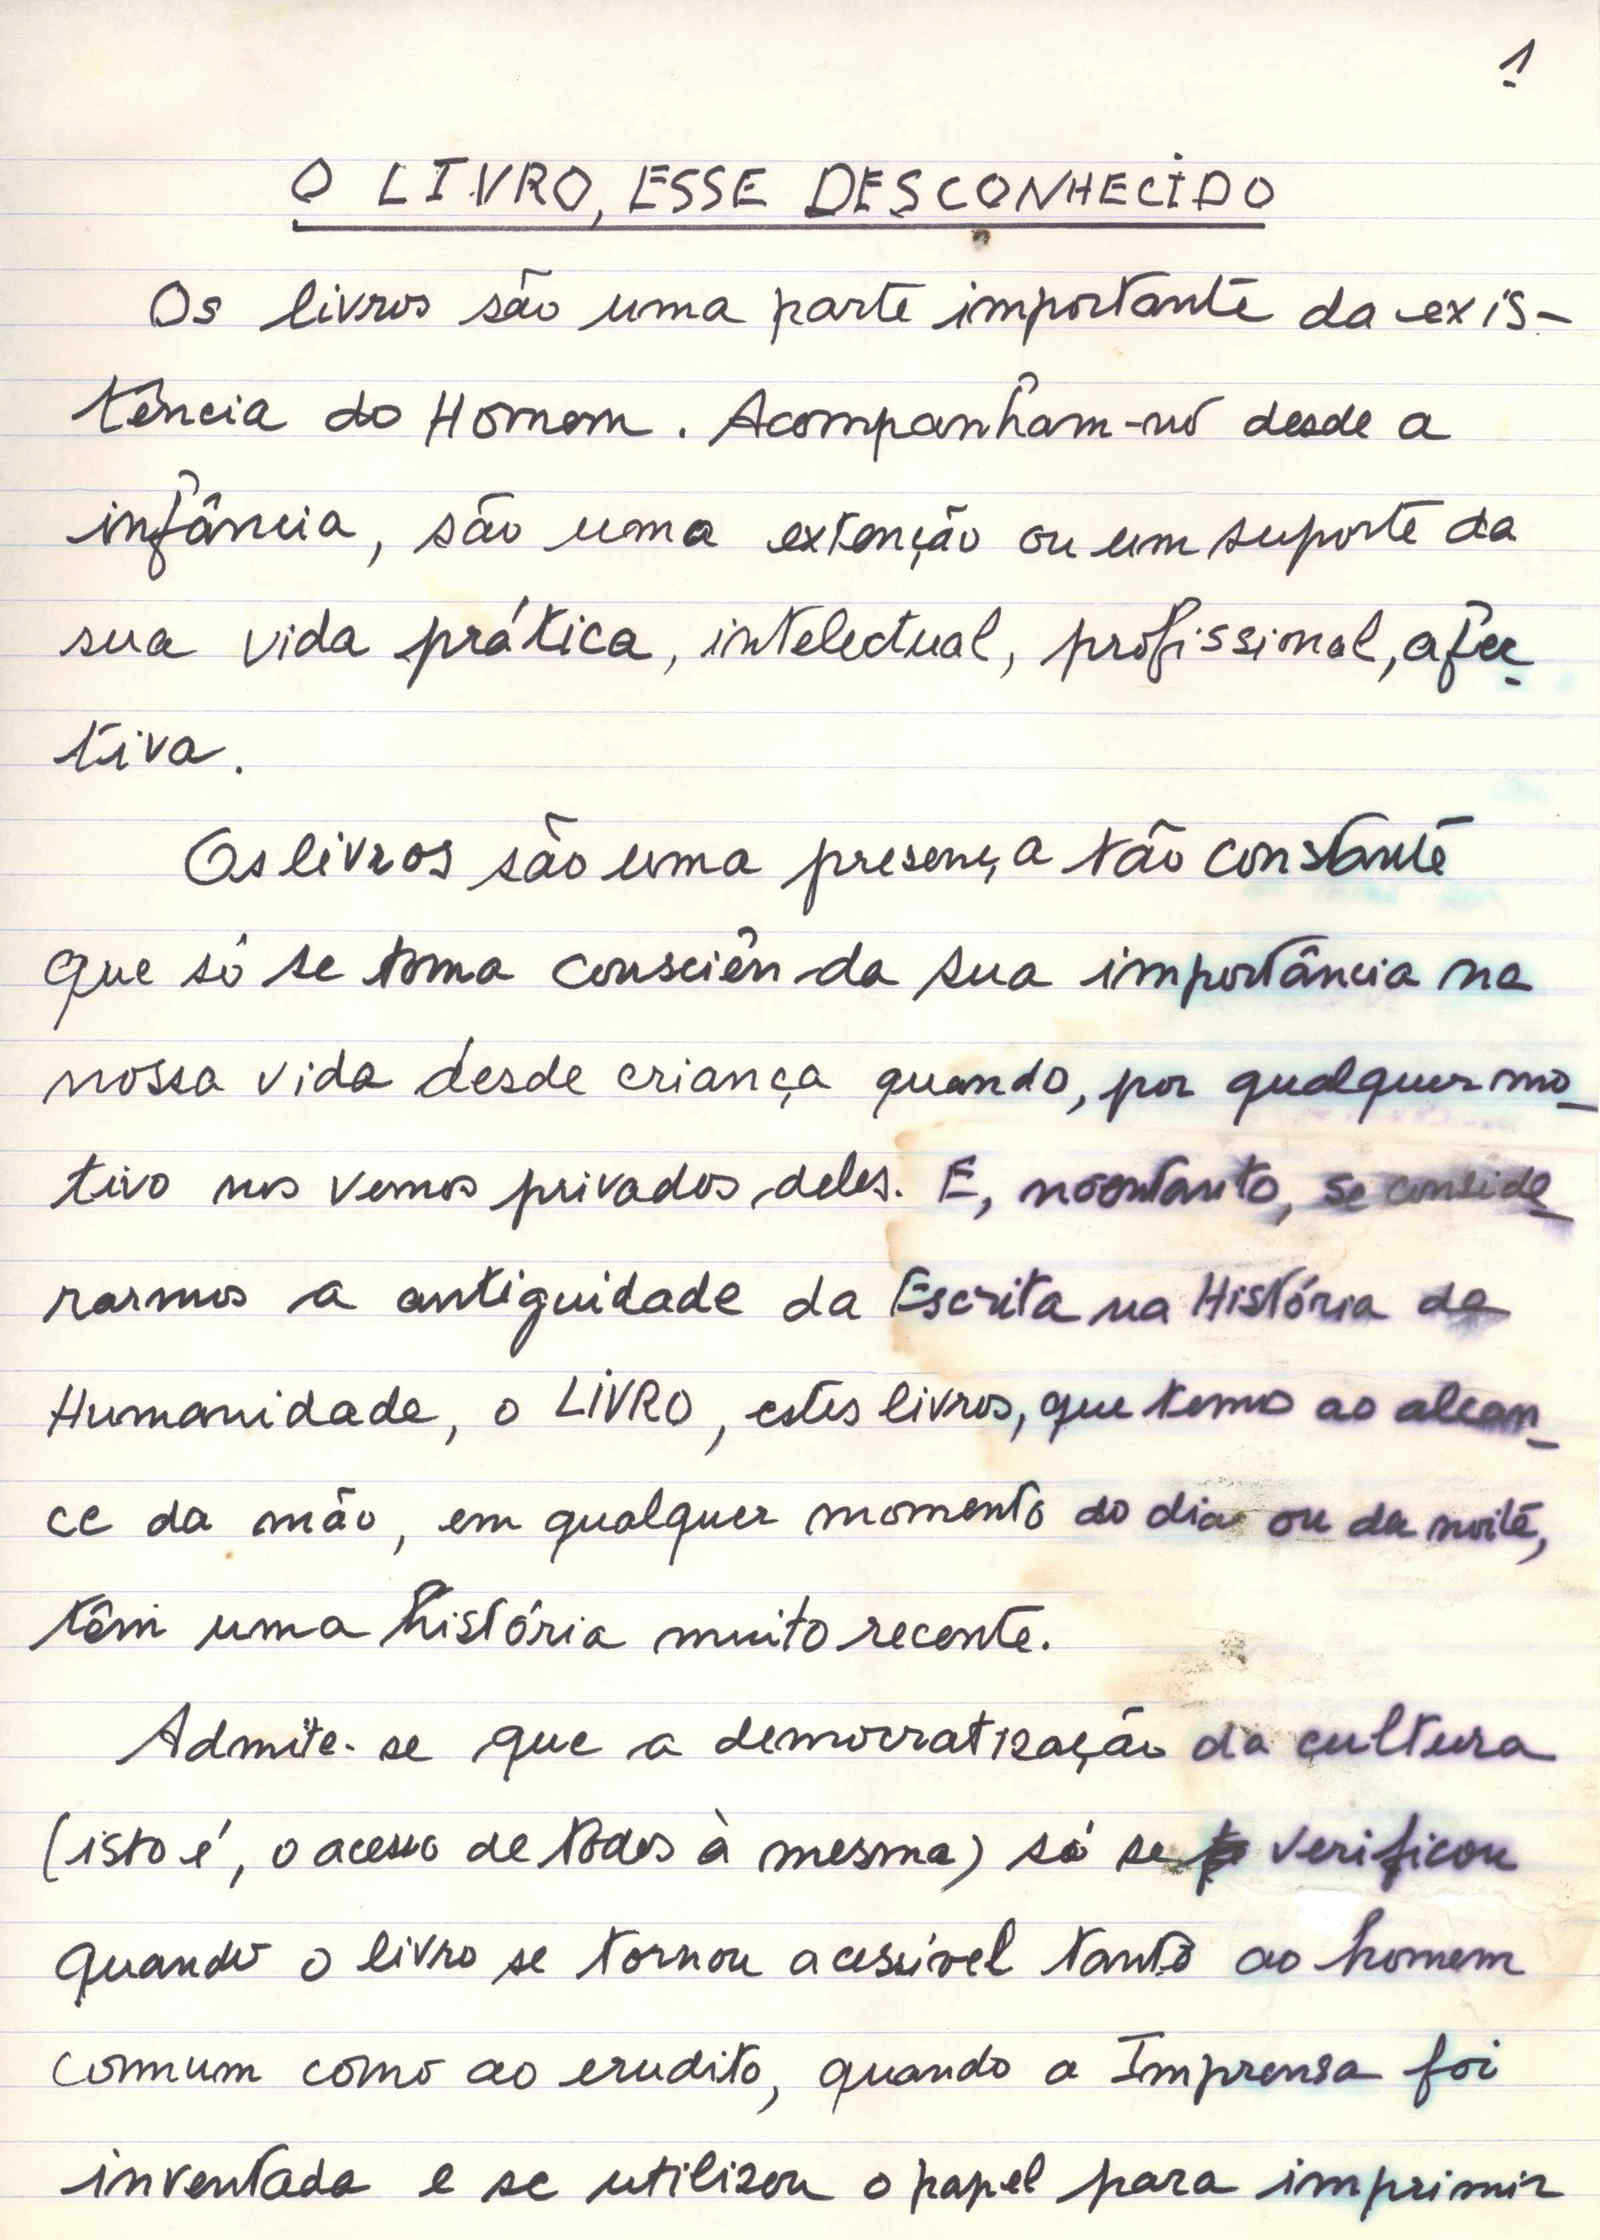 1
O LIVRO, ESSE DESCONHECIDO
Os livros são uma parte importante da exis-
tência do Homem. Acompanham-no desde a
infância, são uma extenção ou um suporte da
sua vida prática, intelectual, profissional, afec-
tiva.
Os livros são uma presença tão constante
que só se toma consciên da sua importância na
nossa vida desde criança quando, por qualquer mo-
tivo nos vemos privados deles. E, no entanto, se conside-
rarmos a antiguidade da Escrita na História da
Humanidade, o LIVRO, estes livros, que temos ao alcan-
ce da mão, em qualquer momento do dia ou da noite,
têm uma história muito recente.
Admite-se que a democratização da cultura
(isto é, o acesso de todos à mesma) só se verificou
quando o livro se tornou acessível tanto ao homem
comum como ao erudito, quando a Imprensa foi
inventada e se utilizou o papel para imprimir